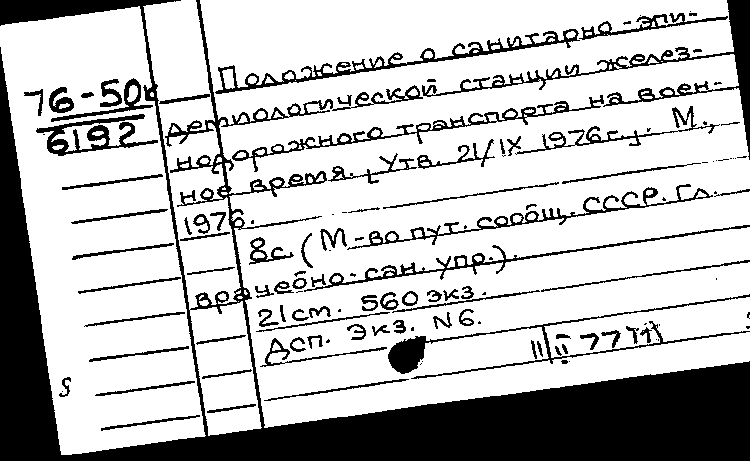 76-50к
6192
Положение о санитарно-эпи-
демиологической станции желез-
нодорожного транспорта на воен-
ное время. [Утв. 21/IX 1976г.]. М.,
1976.
8с. (М-во пут. сообщ. СССР. Гл.
врачебно-сан. упр.).
21 см. 560 экз.
Дсп. Экз. N6.
11/II 77
8